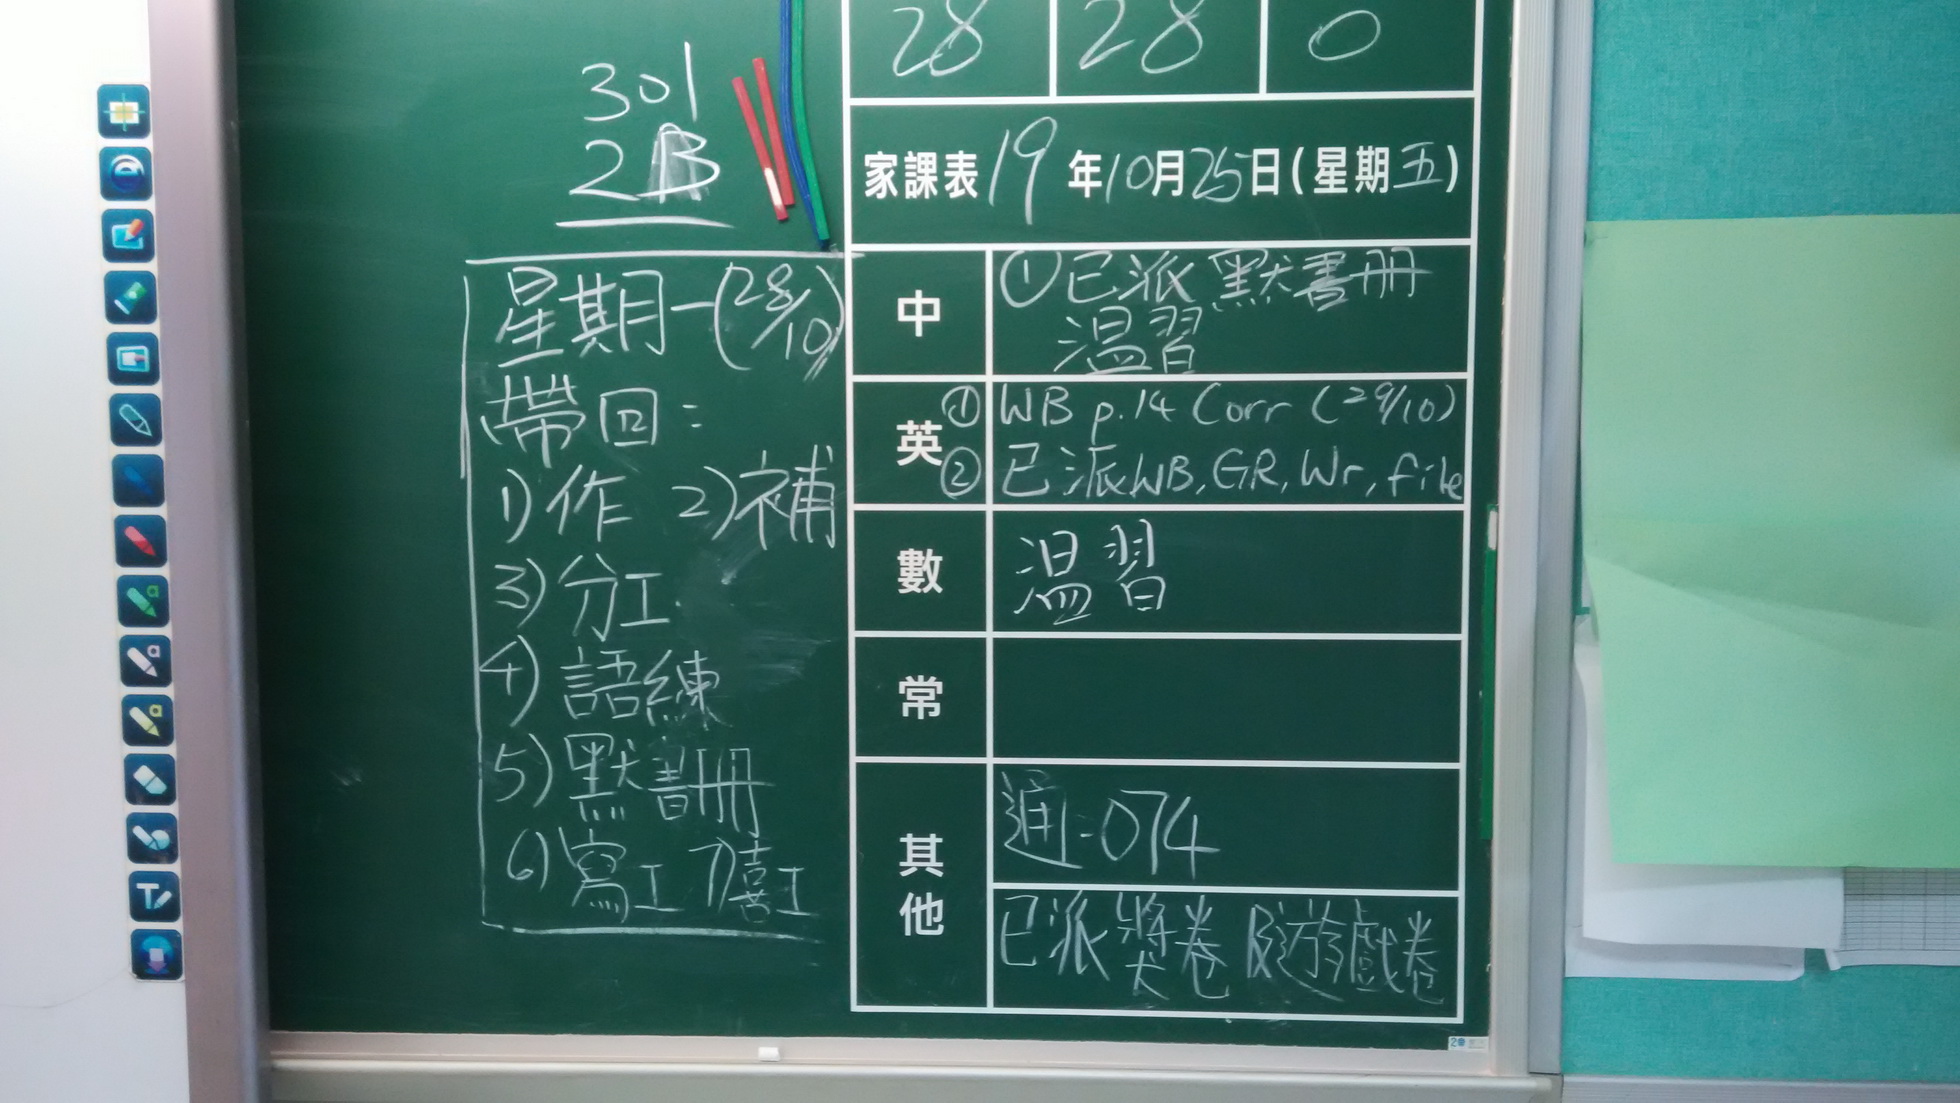 301
2B
星期一(28/10)
帶回:
1)作 2)補
3)分工
4)語練
5)默書冊
6)寫工 7)喜工
28 28 0
家課表19年10月25日(星期五)
中
①已派默書冊
温習
英
①WB p.14 Corr (29/10)
②已派WB, GR, Wr, file
數
温習
常
其他
通:074
已派獎卷及遊戲卷